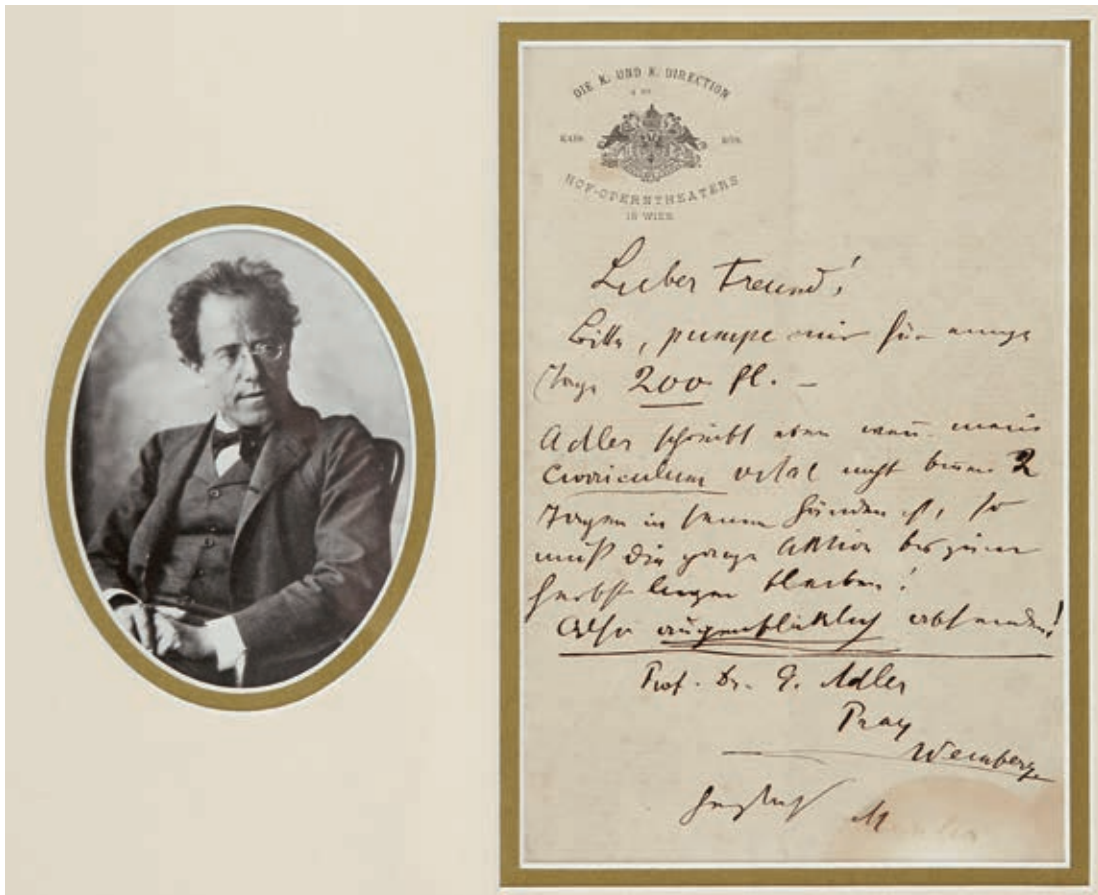 DIE K. UND K. DIRECTION
KAIS. KÖN.
HOF-OPERNTHEATERS
IN WIEN
Lieber Freund!
Bitte, pumpe mir für einige
Tage 200 fl. –
Adler schreibt eben wenn mein
Curriculum vitae nicht binnen 2
Tagen in seinen Händen ist, so
muß die ganze Aktion bis zum
Herbst liegen bleiben!
Also augenblicklich absenden!
Prof. Dr. G. Adler
Prag
Weinberge
Herzlichst M